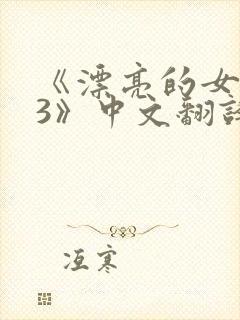 《漂亮的女
3》中文翻譯
冱寒